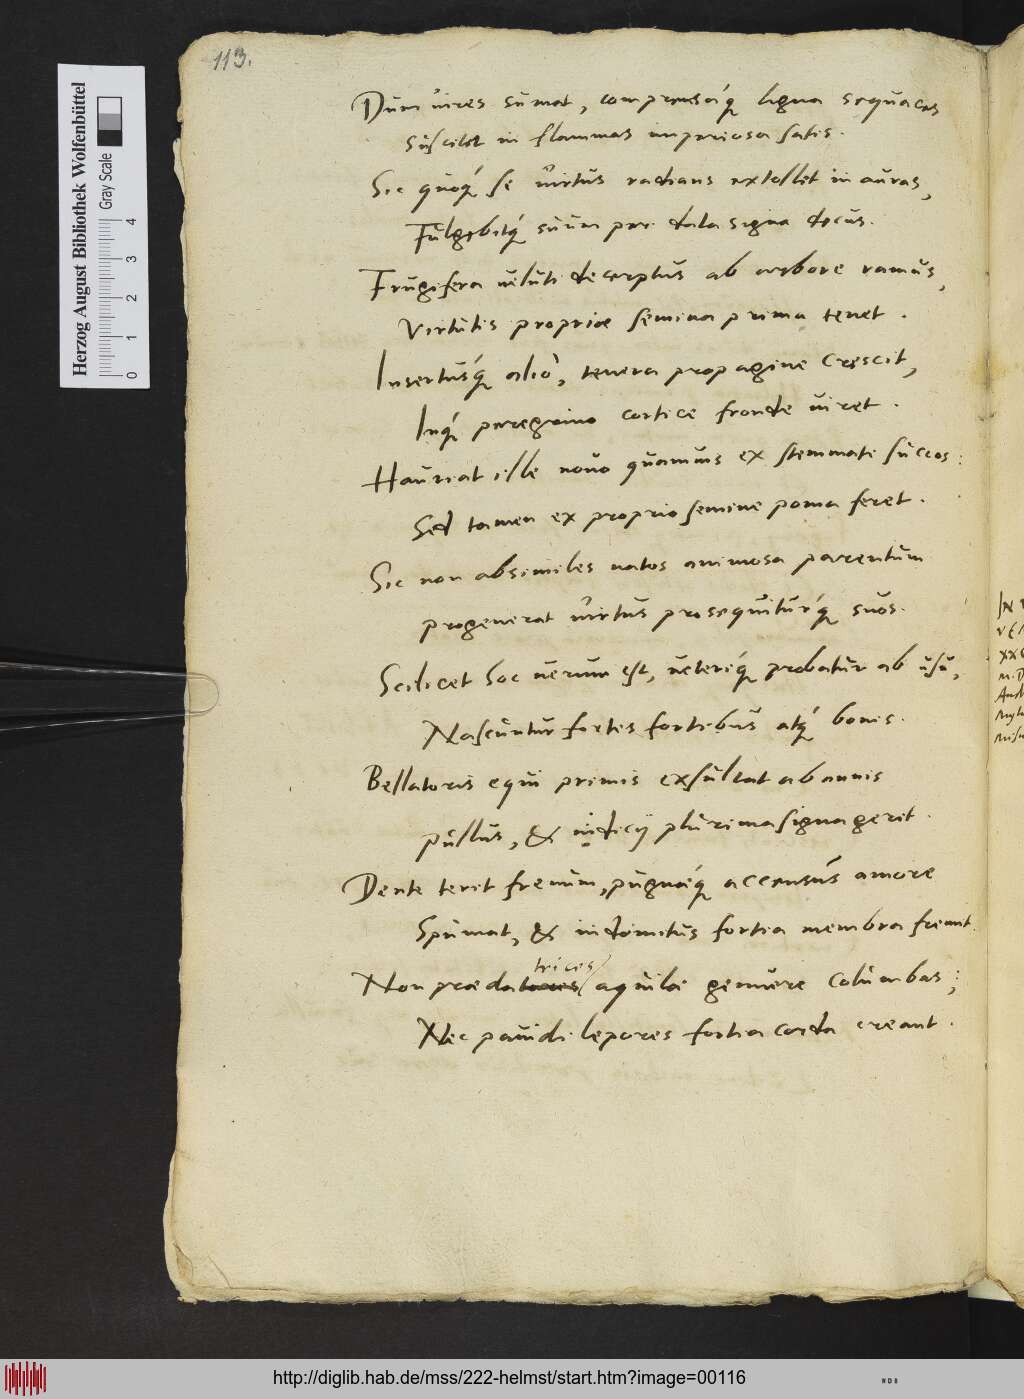 113.
Dum vires sumat, comprensáq́ue ligna sequaces
Suscitet in flammas imperiosa satis.
Sic quoq́ se virtus radians extollit in auras,
Fulgebitq́ suum per data signa decus.
Frugifera veluti decerptus ab arbore ramus,
Virtutis propriae semina prima tenet.
Insertusq́ alio, tenera propagine crescit,
Inq́ peregrino cortice fronde viret.
Hauriat ille novo quamuis ex stemmate succos:
Sed tamen ex proprio semine poma feret.
Sic non absimiles natos animosa parentum
progenerat virtus prosequiturq́ suos.
Scilicet hoc uerum est, ueteriq́ probatur ab usu,
Nascuntur fortes fortibus atq́ bonis.
Bellatoris equi primis exsultat ab annis
pullus, & indicij plurima signa gerit.
Dente terit frenum, pugnaeq́ accensus amore
Spumat, & indomitus fortia membra fremit.
trices
Non praedatores aquilae genuere columbas;
Nec pauidi lepores fortia corda creant.
Herzog August Bibliothek Wolfenbüttel
Gray Scale
0 1 2 3 4
http://diglib.hab.de/mss/222-helmst/start.htm?image=00116